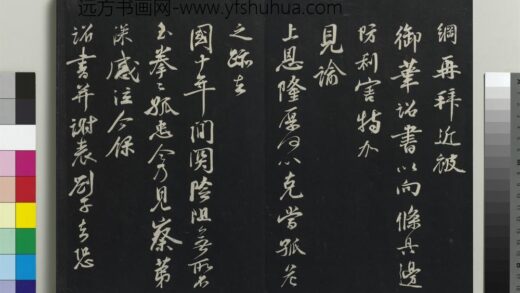 远方书画网-www.yfshuhua.com
綱再拜近被
御筆詔書以向條具邊
防利害特加
見諭
上恩隆厚何以克當孤
之跡去
國十年間關險阻無
孤忠今乃見察第
深感泣今保
詔書并謝表劄子去恐